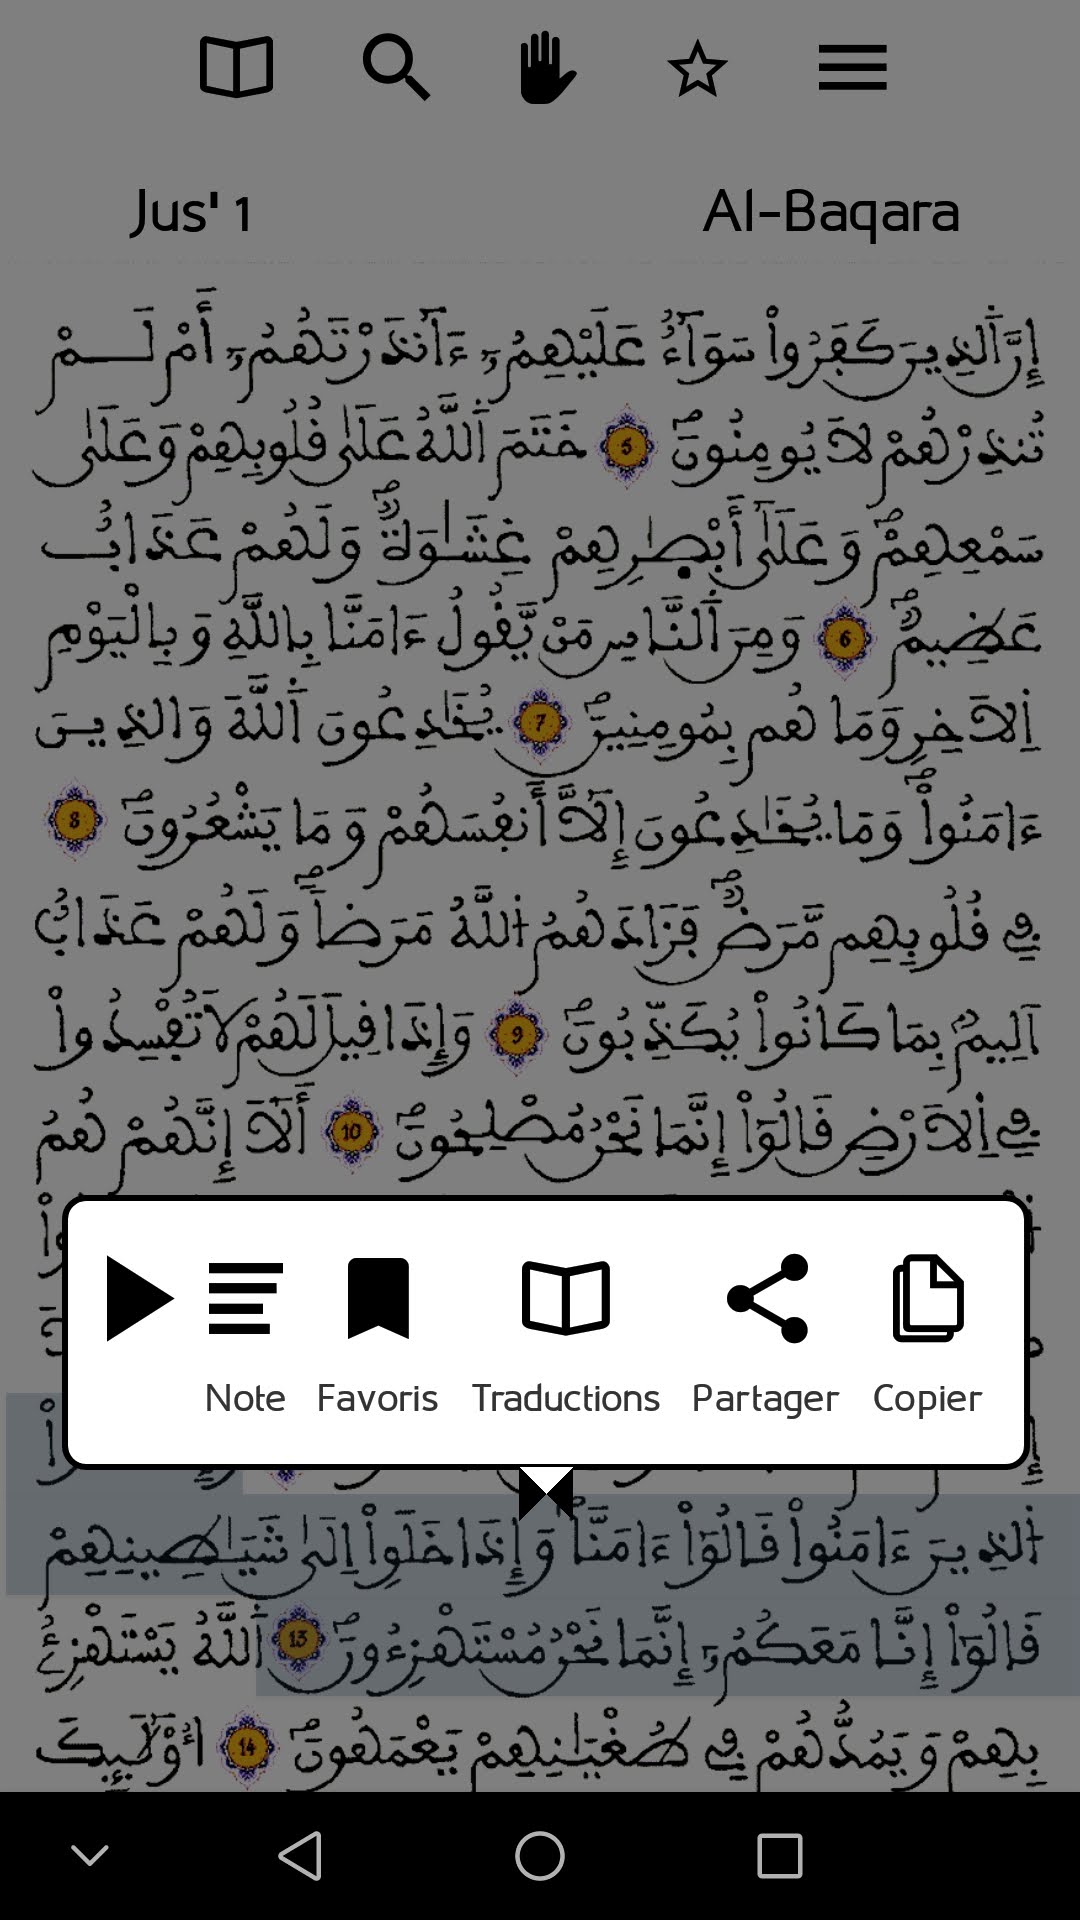 Jus' 1 Al-Baqara
إِنَّ ٱلذِينَ كَفَرُواْ سَوَآءٌ عَلَيْهِمُۥٓ ءَآنذَرْتَهُمُۥٓ أَمْ لَمْ
تُنذِرْهُمْ لَا يُومِنُونَۖ 5 خَتَمَ ٱللَّهُ عَلَىٰ قُلُوبِهِمْ وَعَلَىٰ
سَمْعِهِمْۖ وَعَلَىٰٓ أَبْصٰ۪رِهِمْ غِشَٰوَةٞۖ وَلَهُمْ عَذَابٌ
عَظِيمٞۖ 6 وَمِنَ ٱلنَّاسِ مَنْ يَّقُولُ ءَامَنَّا بِاللَّهِ وَبِالْيَوْمِ
اِلَاخِرِ وَمَا هُم بِمُومِنِينَۖ 7 يُخَٰدِعُونَ ٱللَّهَ وَالذِينَ
ءَامَنُواْۖ وَمَا يُخَٰدِعُونَ إِلَّآ أَنفُسَهُمْ وَمَا يَشْعُرُونَۖ 8
فِي قُلُوبِهِم مَّرَضٞۖ فَزَادَهُمُ ٱللَّهُ مَرَضاٗۖ وَلَهُمْ عَذَابٌ
اَلِيمُۢ بِمَا كَانُواْ يُكَذِّبُونَۖ 9 وَإِذَا قِيلَ لَهُمْ لَا تُفْسِدُواْ
فِي اِلَارْضِ قَالُوٓاْ إِنَّمَا نَحْنُ مُصْلِحُونَۖ 10 أَلَآ إِنَّهُمْ هُمُ
Note Favoris Traductions Partager Copier
ٱلذِينَ ءَامَنُواْ قَالُوٓاْ ءَامَنَّا وَإِذَا خَلَوِاْ اِلَىٰ شَيَٰطِينِهِمْ
قَالُوٓاْ إِنَّا مَعَكُمُۥٓ إِنَّمَا نَحْنُ مُسْتَهْزِءُونَۖ 13 ٱللَّهُ يَسْتَهْزِئُ
بِهِمْ وَيَمُدُّهُمْ فِي طُغْيَٰنِهِمْ يَعْمَهُونَۖ 14 اُوْلَٰٓئِكَ